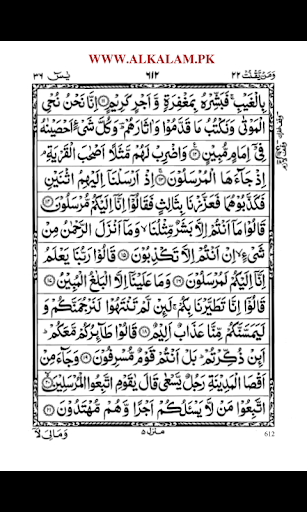 WWW.ALKALAM.PK
یٰسٓ ٣٦ ٦١٢ وَمَنْ يَّقْنُتْ ٢٢
بِالْغَيْبِ ۚ فَبَشِّرْهُ بِمَغْفِرَةٍ وَّاَجْرٍ كَرِيْمٍ ﴿١١﴾ اِنَّا نَحْنُ نُحْيِ
الْمَوْتٰى وَنَكْتُبُ مَا قَدَّمُوْا وَاٰثَارَهُمْ ؕ وَكُلَّ شَيْءٍ اَحْصَيْنٰهُ
فِيْۤ اِمَامٍ مُّبِيْنٍ ﴿١٢﴾ وَاضْرِبْ لَهُمْ مَّثَلًا اَصْحٰبَ الْقَرْيَةِ ۘ
اِذْ جَآءَهَا الْمُرْسَلُوْنَ ﴿١٣﴾ اِذْ اَرْسَلْنَاۤ اِلَيْهِمُ اثْنَيْنِ
فَكَذَّبُوْهُمَا فَعَزَّزْنَا بِثَالِثٍ فَقَالُوْۤا اِنَّاۤ اِلَيْكُمْ مُّرْسَلُوْنَ ﴿١٤﴾
قَالُوْا مَاۤ اَنْتُمْ اِلَّا بَشَرٌ مِّثْلُنَا ۙ وَمَاۤ اَنْزَلَ الرَّحْمٰنُ مِنْ
شَيْءٍ ۙ اِنْ اَنْتُمْ اِلَّا تَكْذِبُوْنَ ﴿١٥﴾ قَالُوْا رَبُّنَا يَعْلَمُ
اِنَّاۤ اِلَيْكُمْ لَمُرْسَلُوْنَ ﴿١٦﴾ وَمَا عَلَيْنَاۤ اِلَّا الْبَلٰغُ الْمُبِيْنُ ﴿١٧﴾
قَالُوْۤا اِنَّا تَطَيَّرْنَا بِكُمْ ۚ لَئِنْ لَّمْ تَنْتَهُوْا لَنَرْجُمَنَّكُمْ وَ
لَيَمَسَّنَّكُمْ مِّنَّا عَذَابٌ اَلِيْمٌ ﴿١٨﴾ قَالُوْا طَآئِرُكُمْ مَّعَكُمْ ؕ
اَئِنْ ذُكِّرْتُمْ ؕ بَلْ اَنْتُمْ قَوْمٌ مُّسْرِفُوْنَ ﴿١٩﴾ وَجَآءَ مِنْ
اَقْصَا الْمَدِيْنَةِ رَجُلٌ يَّسْعٰى قَالَ يٰقَوْمِ اتَّبِعُوا الْمُرْسَلِيْنَ ﴿٢٠﴾
اتَّبِعُوْا مَنْ لَّا يَسْـَٔلُكُمْ اَجْرًا وَّهُمْ مُّهْتَدُوْنَ ﴿٢١﴾
وَمَالِيَ لَاۤ منزل ٥
612